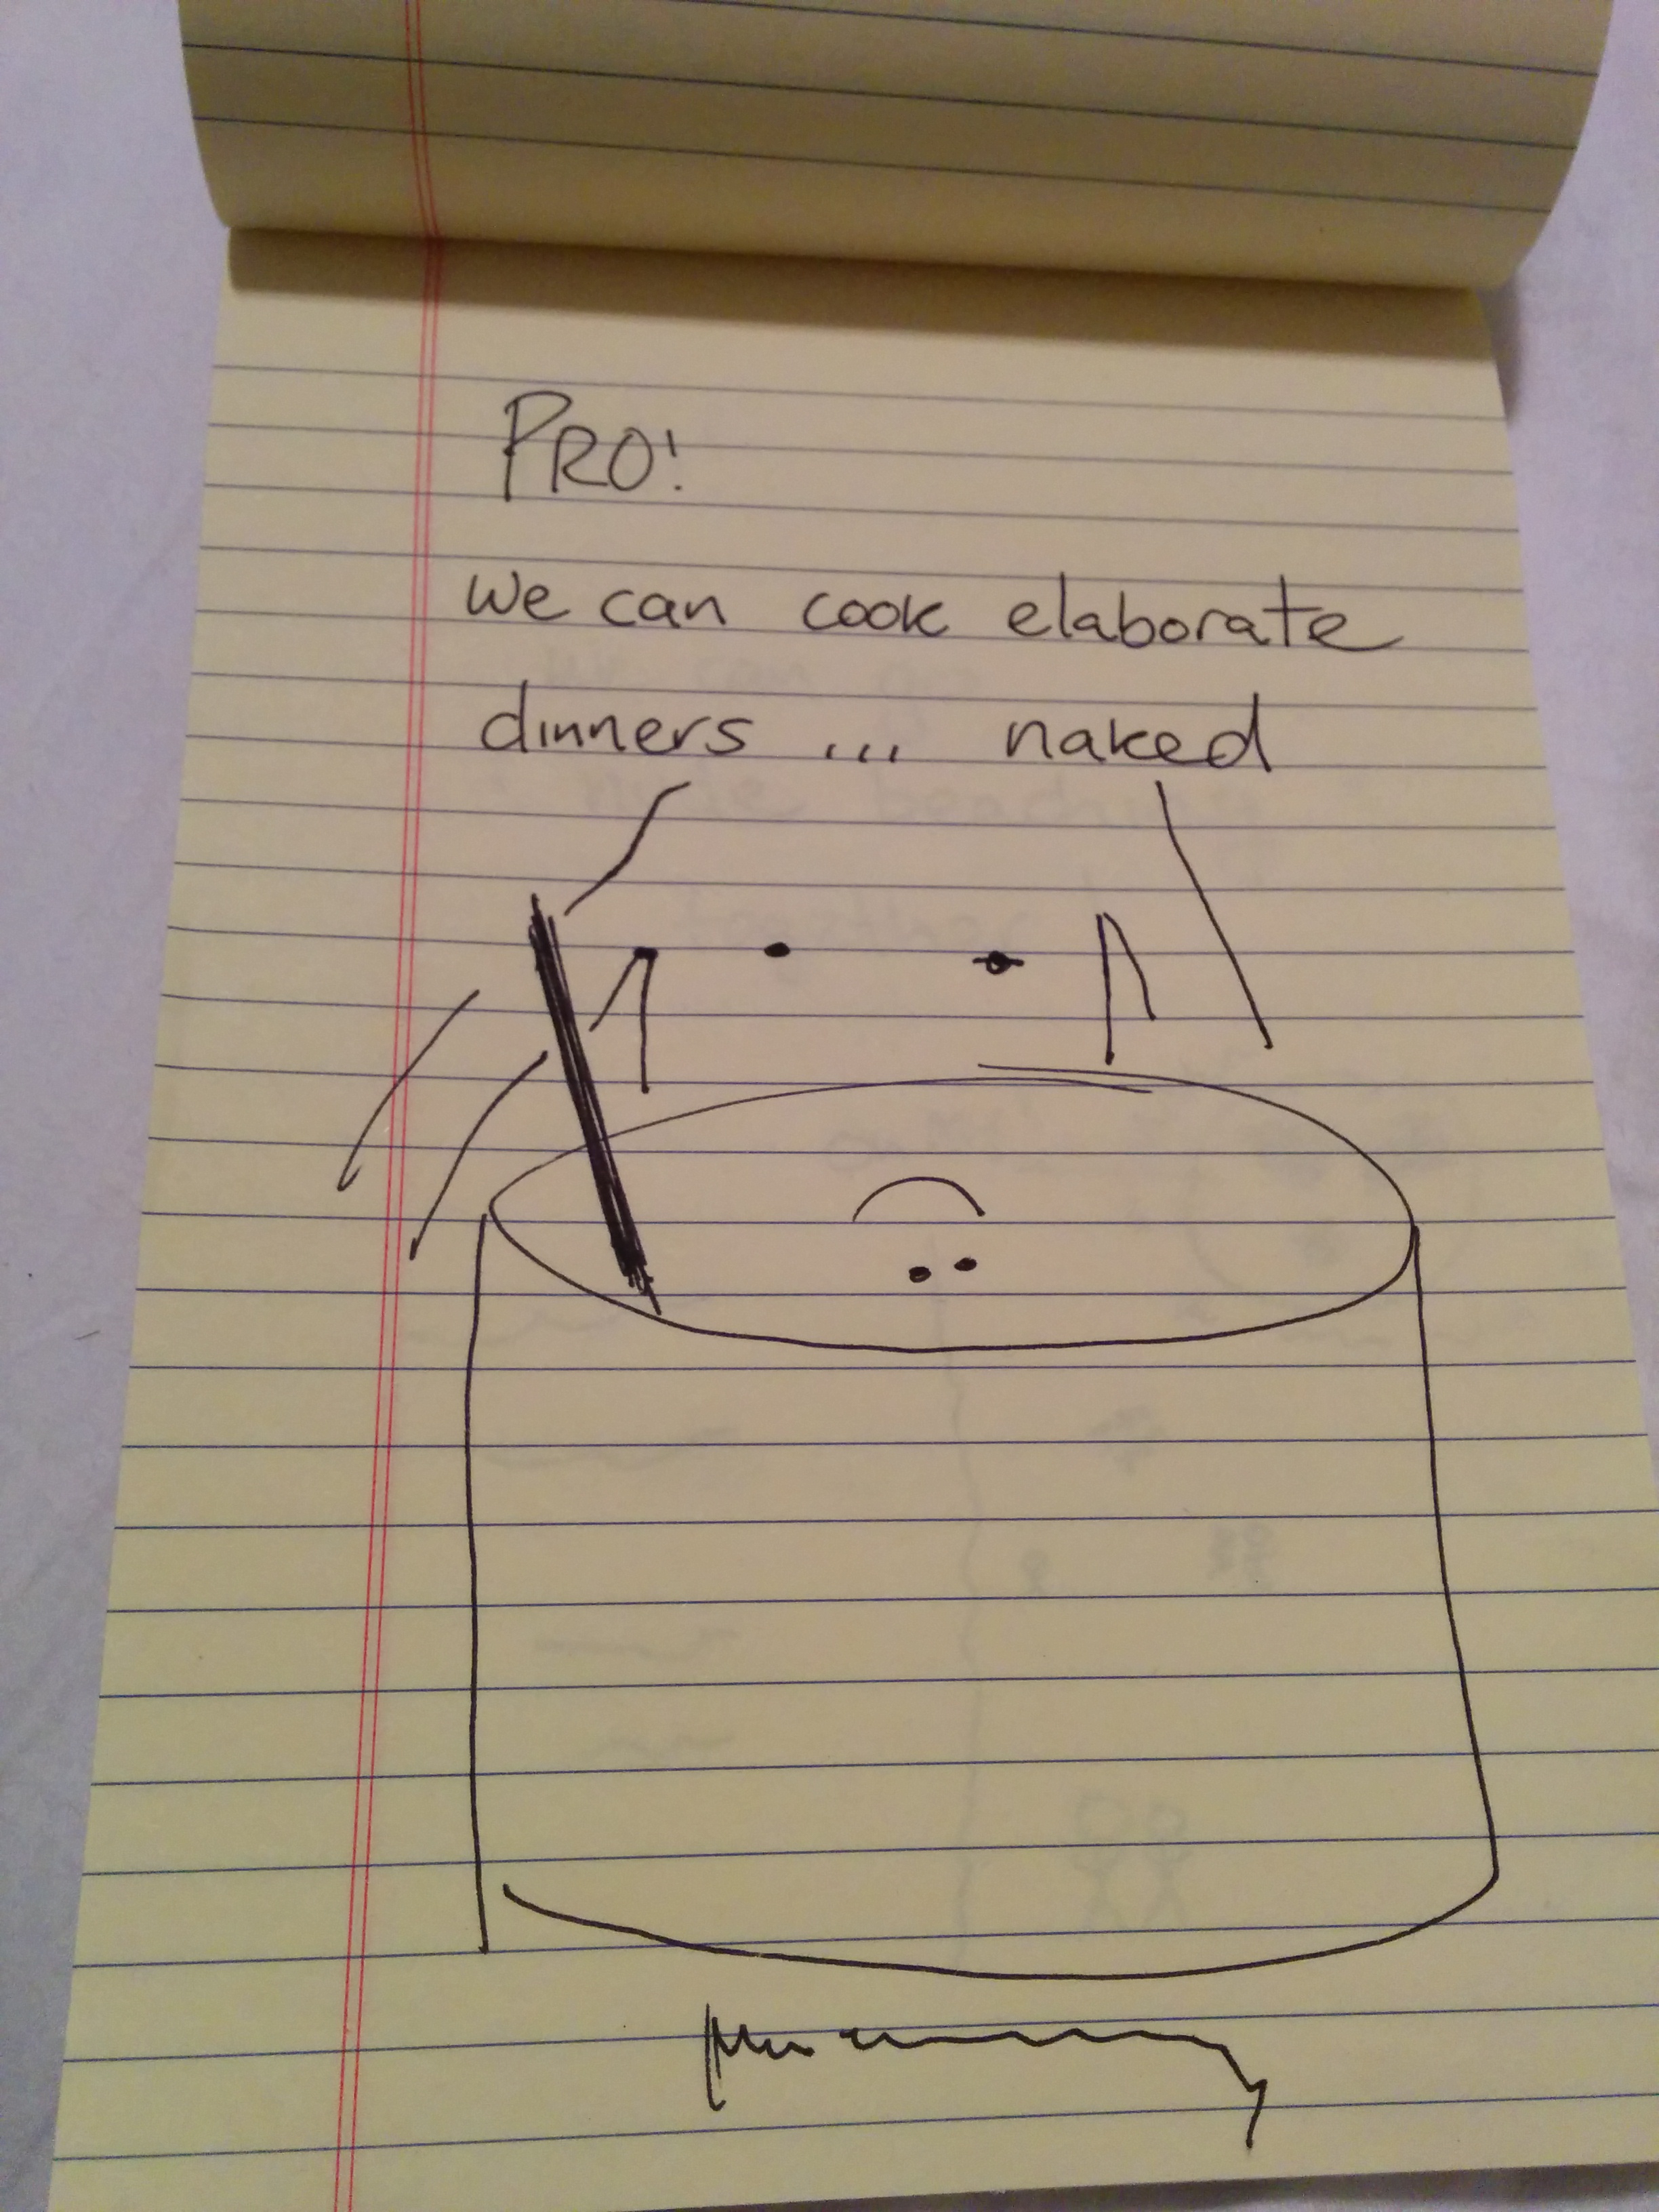 PRO!
we can cook elaborate
dinners ... naked